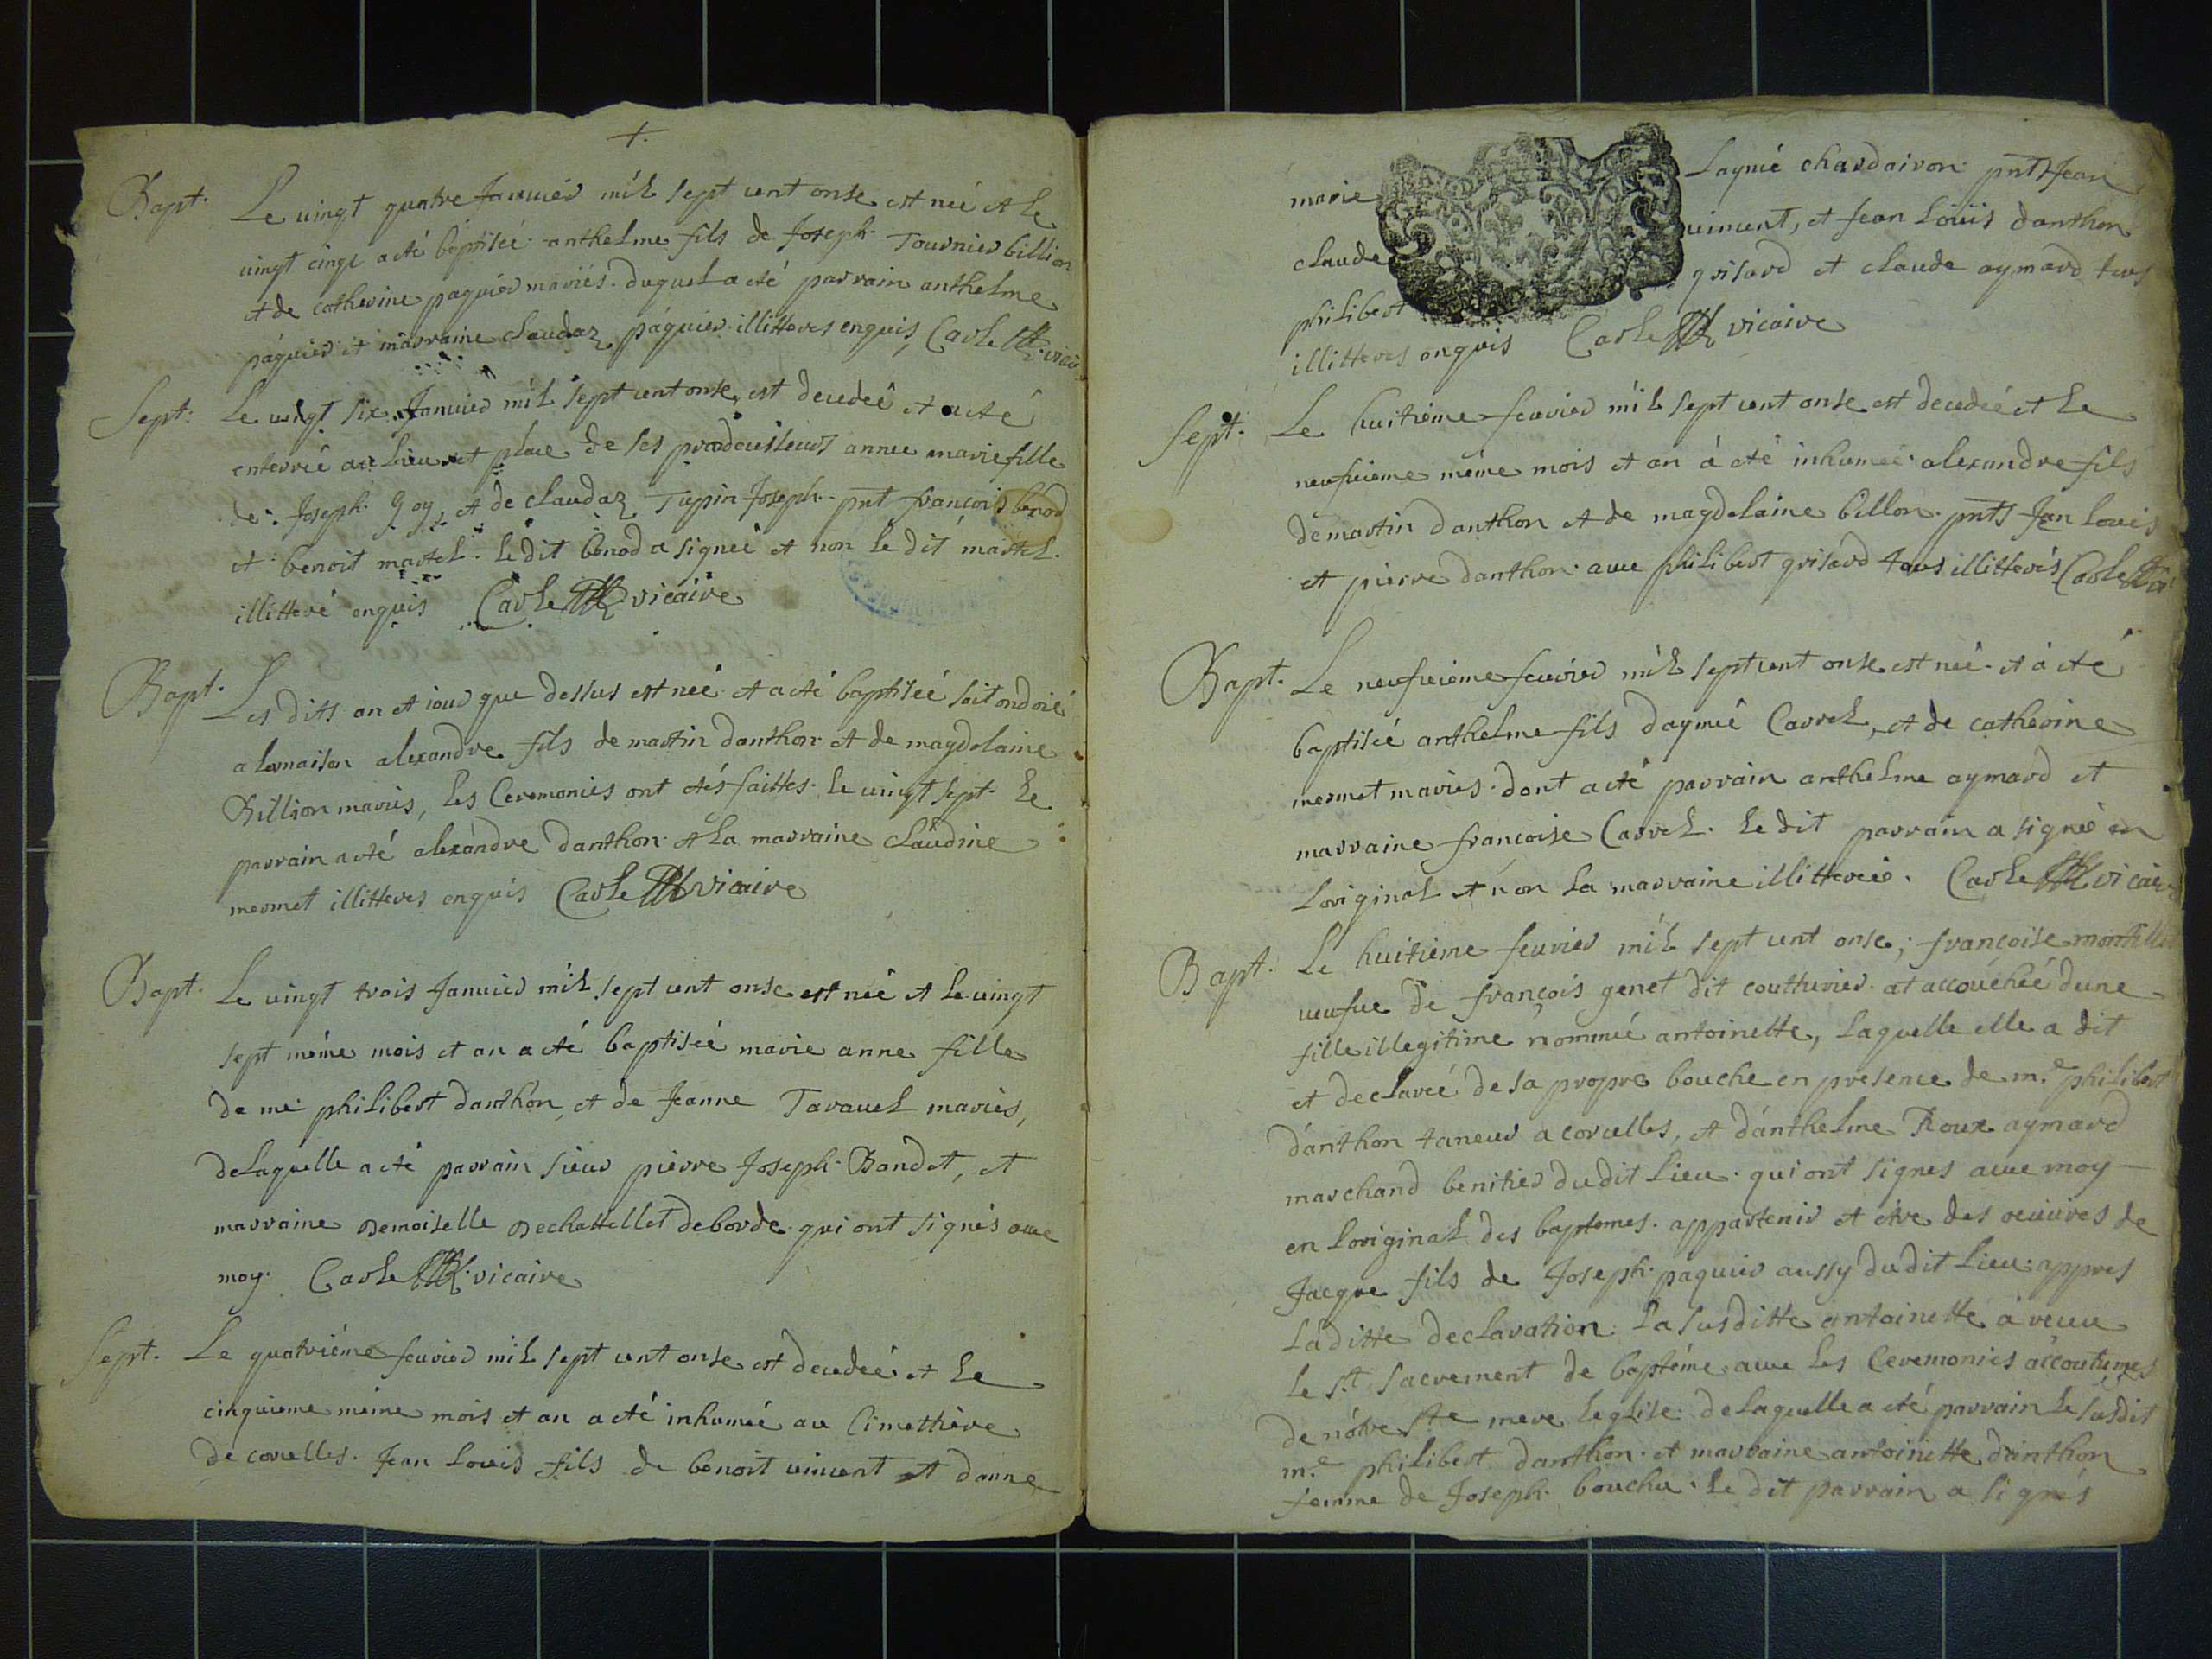 +.
Bapt. Le vingt quatre Januier mil sept cent onse est neé et le
vingt cinqe a eté baptiseé anthelme fils de Joseph Tournier billion
et de catherine paquier mariés. duquel a eté parrain anthelme
páquier et márraine claudaz páquier illitteres enquis, Carle vicaire
Sept: Le vingt six Januier mil sept cent onse, est decedeé et a eté
enterreé au lieu et place de ses predecesseurs annee marie fille
de Joseph goy, et de claudaz Tupin Joseph pnt françois benod
et benoit martel. le dit benod a signeé et non le dit martel.
illitteré enquis Carle vicaire
Bapt. Les dits an et iour que dessus est neé et a eté baptiseé soit ondoié
a la maison alexandre fils de martin danthon et de magdelaine
Billion mariés, les Ceremonies ont etés faittes le vingt sept le
parrain a eté alexandre danthon et la marraine claudine
mermet illitteres enquis Carle vicaire
Bapt. Le vingt trois Januier mil sept cent onse est neé et le vingt
sept même mois et an a eté baptiseé marie anne fille
de me philibert danthon, et de Jeanne Tarauel mariés,
de laquelle a eté parrain sieur pierre Joseph Bandet, et
marraine Demoiselle Dechattellet deborde qui ont signés auec
moy. Carle vicaire
Sept. Le quatriéme feurier mil sept cent onse est decedeé et le
cinquieme même mois et an a eté inhumeé au Cimethère
de corcelles. Jean Louis fils de benoit vincent et danne
marie Laymé chardairon pnts Jean
claude vincent, et Jean Loüis danthon
philibert grisard et claude aymard tous
illitteres enquis Carle vicaire
Sept. Le huitième feurier mil sept cent onse est decedeé et le
neufuieme même mois et an à eté inhumeé alexandre fils
de martin danthon et de magdelaine billon pnts Jean Louis
et pierre danthon auec philibert grisard tous illitterés Carle
Bapt. Le neufuieme feurier mil sept cent onse est neé et à eté
baptiseé anthelme fils daymé Carrel, et de catherine
mermet mariés. dont a eté parrain anthelme aymard et
marraine francoise Carrel. le dit parrain a signé en
loriginal et non la marraine illittereé. Carle vicaire
Bapt. Le huitieme feurier mil sept cent onse; françoise montillet
ueufue de françois genet dit coutturier at accoucheé dune
fille illegitime nommeé antoinette, laquelle elle a dit
et declareé de sa propre bouche en presence de m.e philibert
dánthon taneur a corcelles, et dánthelme Roux aymard
marchand benitier du dit lieu qui ont signes auec moy
en loriginal des baptemes. appartenir et etre des oeuures de
Jacque fils de Joseph paquier aussy du dit lieu appres
laditte declaration la susditte antoinette à receu
le St. sacrement de baptéme auec les Ceremonies accoutumés
de nótre Ste mere leglise de laquelle a eté parrain le susdit
m.e philibert danthon et marraine antoinette danthon
femme de Joseph bouchu. le dit parrain a signés